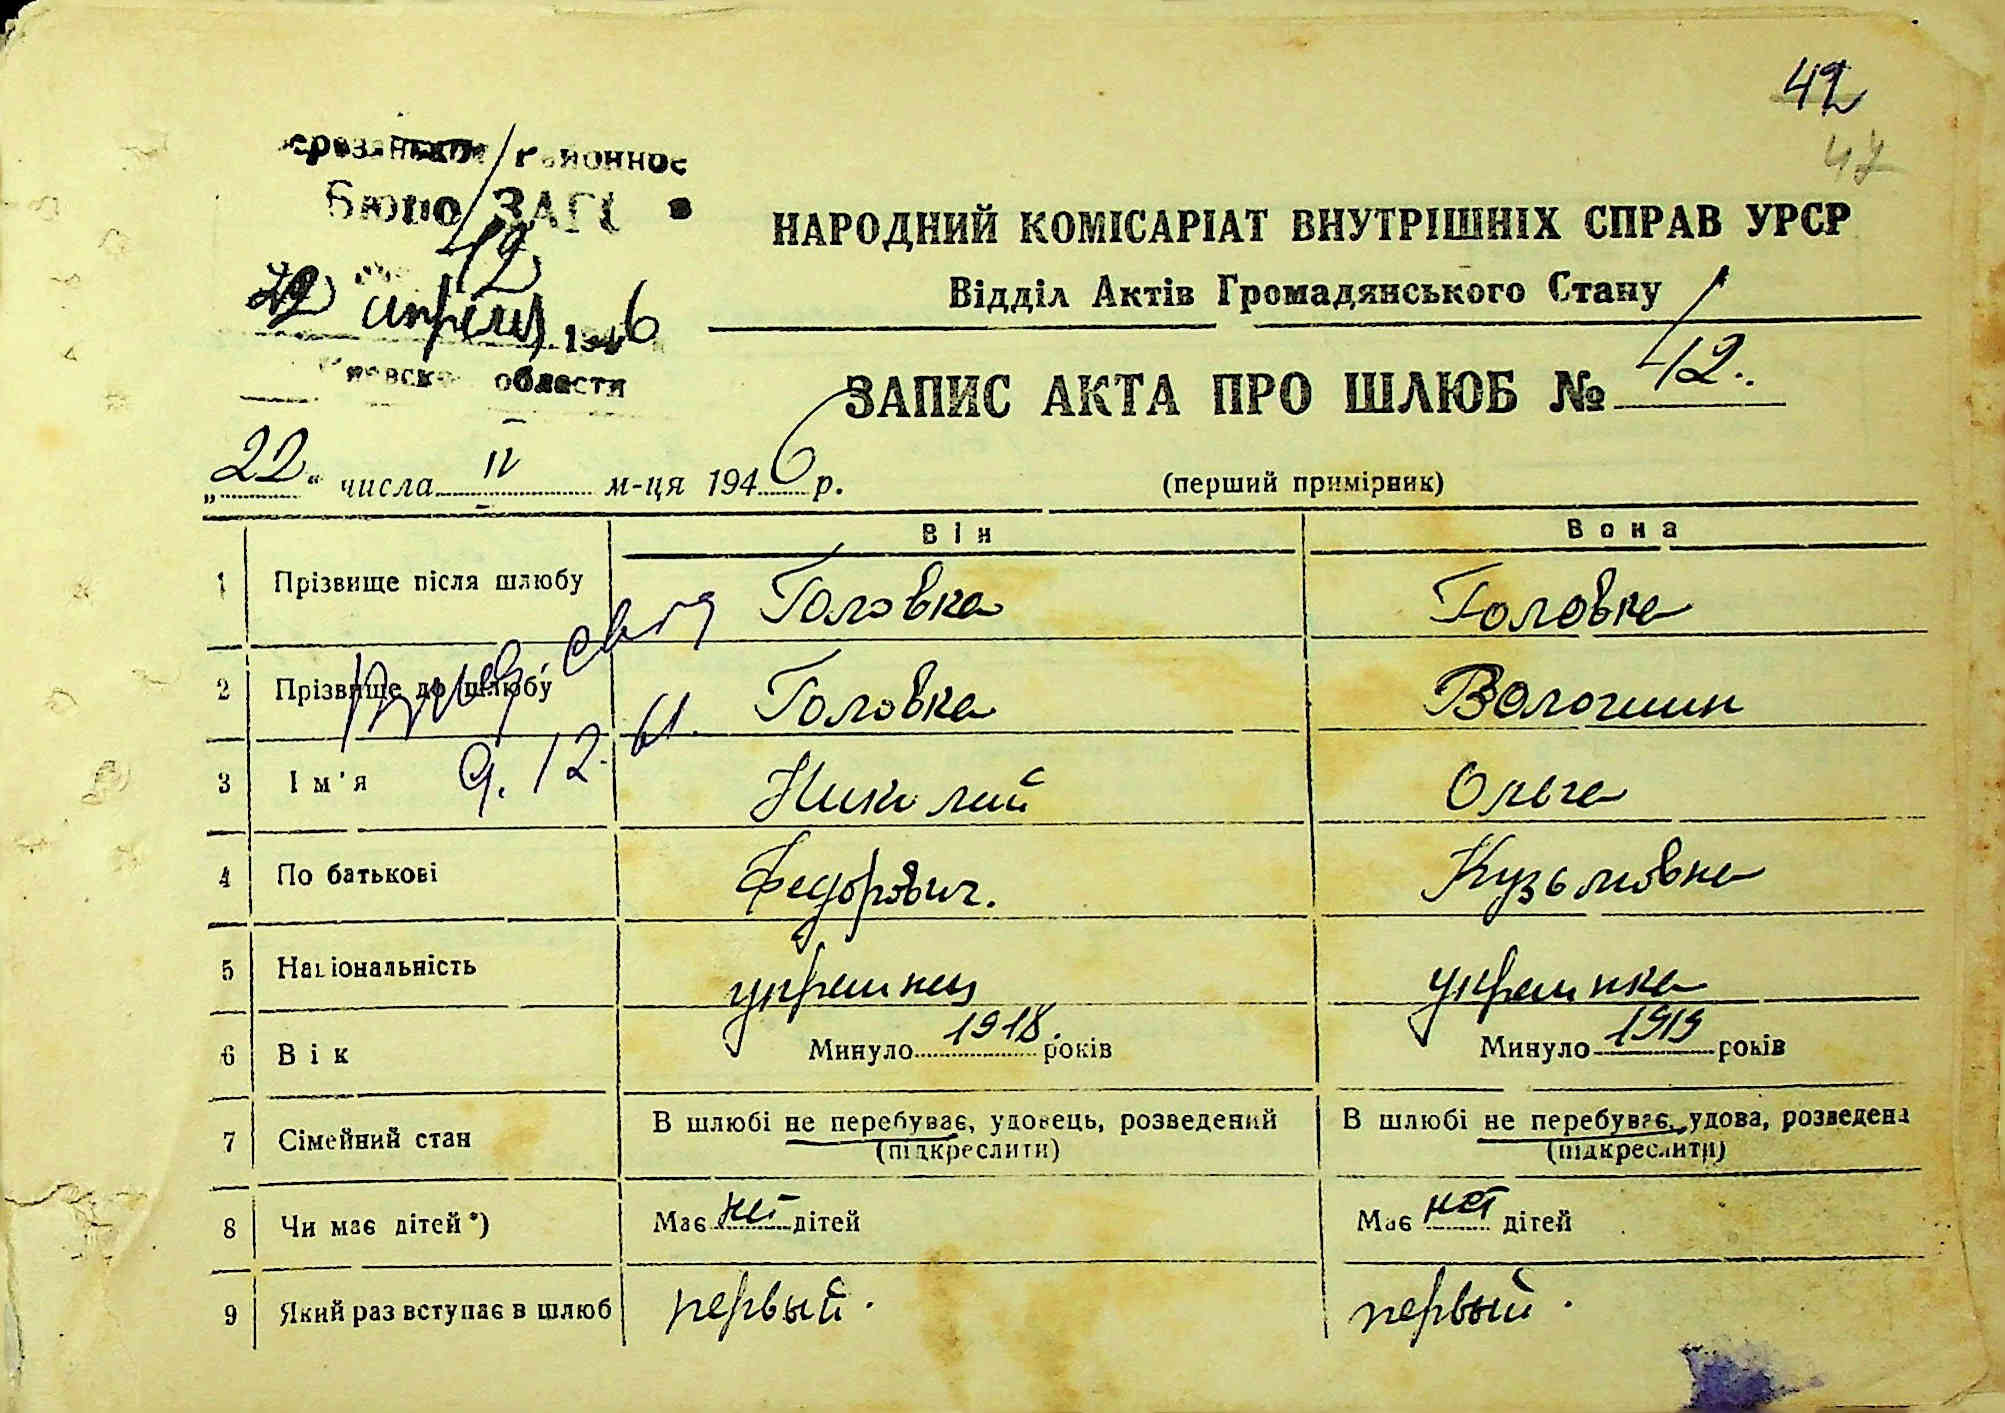 42
47
районное
Бюро ЗАГС
42
22 апреля 1946
области
НАРОДНИЙ КОМІСАРІАТ ВНУТРІШНІХ СПРАВ УРСР
Відділ Актів Громадянського Стану
ЗАПИС АКТА ПРО ШЛЮБ № 42.
„22“ числа IV м-ця 1946 р.
(перший примірник)
Він Вона
1 Прізвище після шлюбу Головка Головка
2 Прізвище до шлюбу Головка Волошин
9.12.61.
3 Ім'я Николай Ольга
4 По батькові Федорович. Кузьмовна
5 Національність украинец украинка
6 Вік Минуло 1918. років Минуло 1919 років
7 Сімейний стан В шлюбі не перебуває, удовець, розведений В шлюбі не перебуває, удова, розведена
(підкреслити) (підкреслити)
8 Чи має дітей*) Має нет дітей Має нет дітей
9 Який раз вступає в шлюб первый. первый.